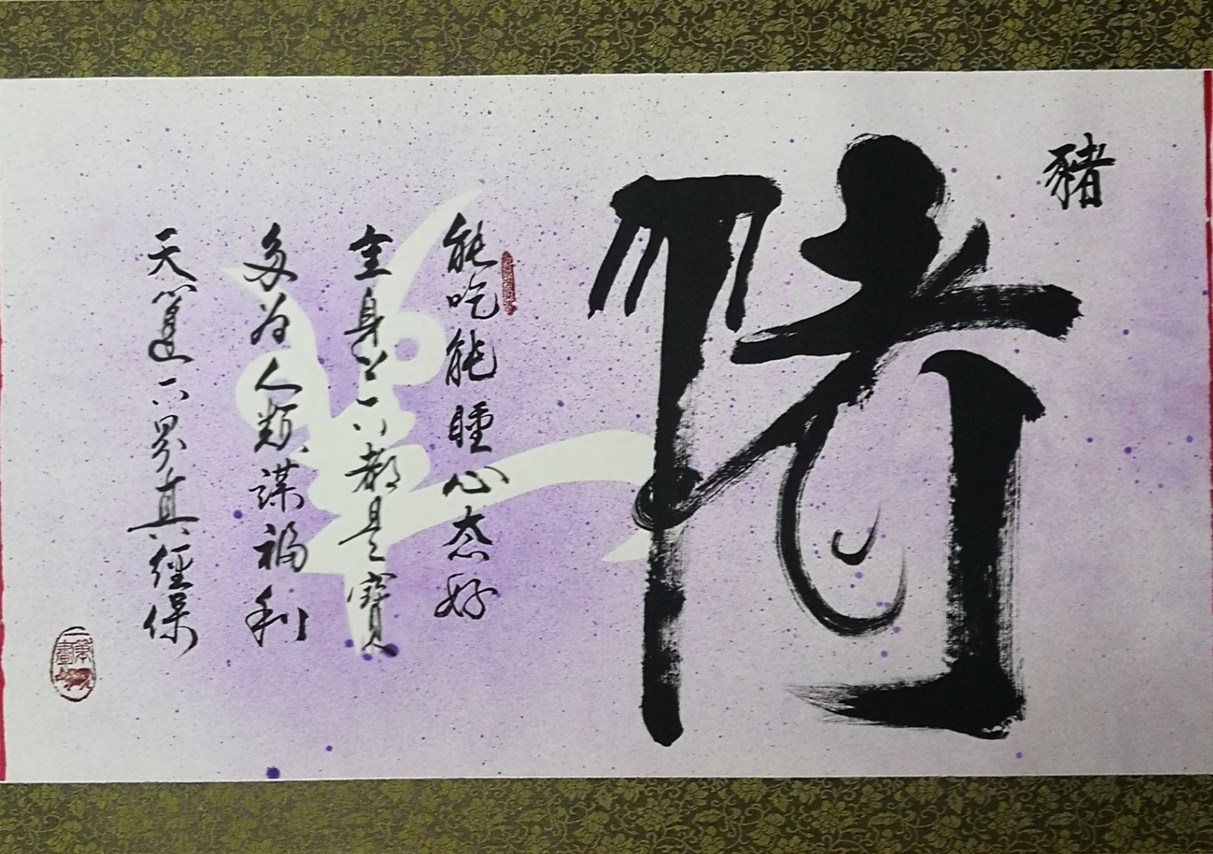 豬
豬
能吃能睡心态好
全身上下都是寶
多为人類謀福利
天蓬下界真經保